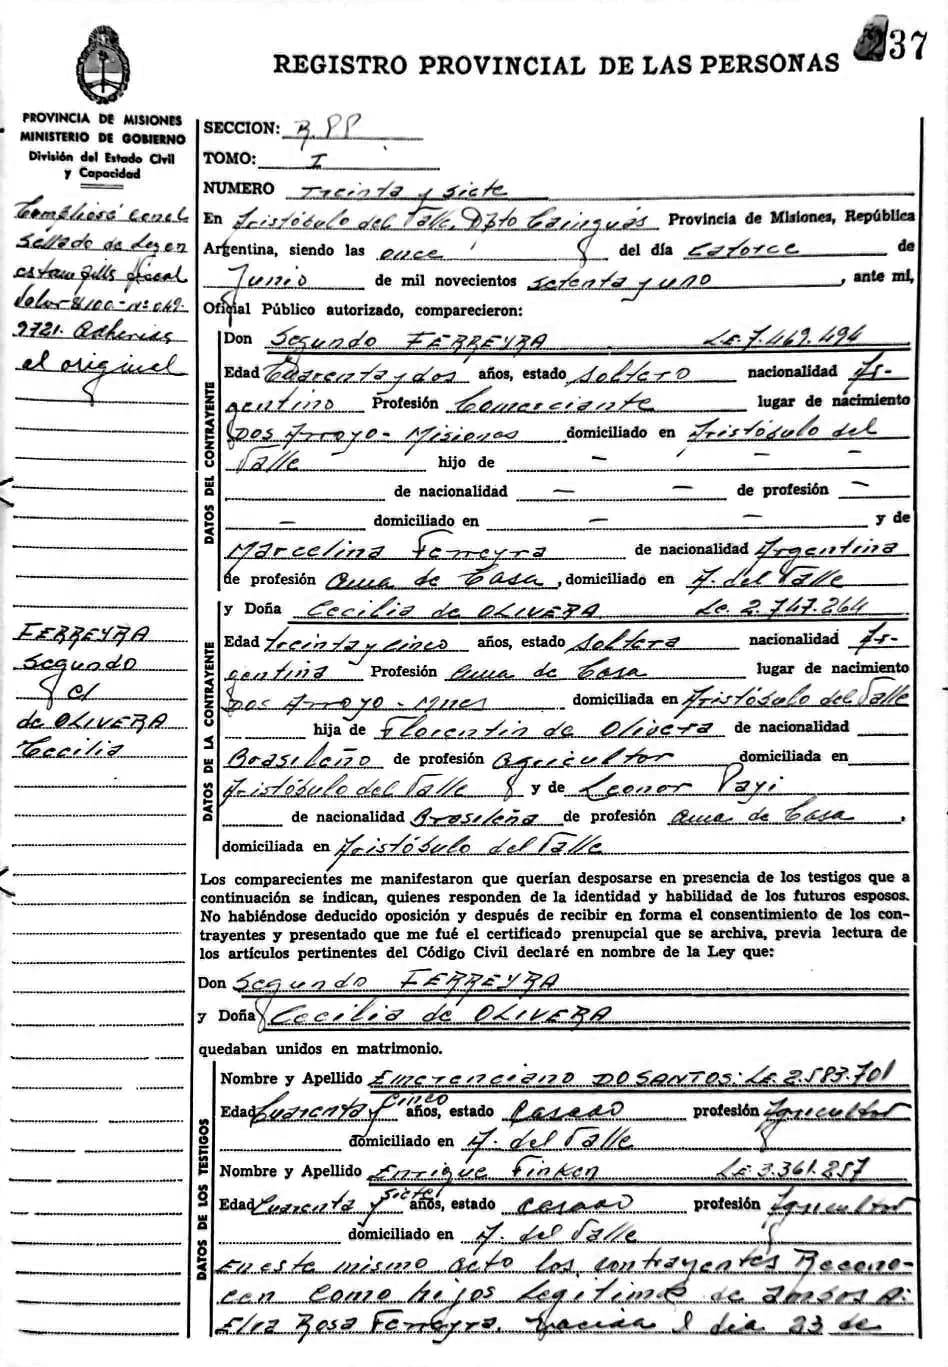 237
REGISTRO PROVINCIAL DE LAS PERSONAS
PROVINCIA DE MISIONES
MINISTERIO DE GOBIERNO
División del Estado Civil
y Capacidad
SECCION: R.PP
TOMO: I
NUMERO Treinta y siete
En Aristóbulo del Valle, Dpto Cainguás Provincia de Misiones, República
Argentina, siendo las once del día catorce de
Junio de mil novecientos setenta y uno, ante mi,
Oficial Público autorizado, comparecieron:
sellado de Ley en
fiscal
9721. 
el original
DATOS DEL CONTRAYENTE
Don Segundo FERREYRA L.E. 7.469.494
Edad Cuarenta y dos años, estado soltero nacionalidad Ar-
gentino Profesión Comerciante lugar de nacimiento
Dos Arroyo - Misiones domiciliado en Aristóbulo del
Valle hijo de — — —
de nacionalidad — — de profesión —
— domiciliado en — — y de
Marcelina Ferreyra de nacionalidad Argentina
de profesión Ama de Casa, domiciliado en A. del Valle
DATOS DE LA CONTRAYENTE
y Doña Cecilia de OLIVERA Lc. 2.747.264
Edad treinta y cinco años, estado soltera nacionalidad Ar-
gentina Profesión ama de Casa lugar de nacimiento
Dos Arroyo - Mnes domiciliada en Aristóbulo del Valle
hija de Florentin de Olivera de nacionalidad
Brasileño de profesión Agricultor domiciliada en
Aristóbulo del Valle y de Leonor Payi
de nacionalidad Brasileña de profesión Ama de Casa,
domiciliada en Aristóbulo del Valle
FERREYRA
Segundo
c/
de OLIVERA
Cecilia
Los comparecientes me manifestaron que querían desposarse en presencia de los testigos que a
continuación se indican, quienes responden de la identidad y habilidad de los futuros esposos.
No habiéndose deducido oposición y después de recibir en forma el consentimiento de los con-
trayentes y presentado que me fué el certificado prenupcial que se archiva, previa lectura de
los artículos pertinentes del Código Civil declaré en nombre de la Ley que:
Don Segundo FERREYRA
y Doña Cecilia de OLIVERA
quedaban unidos en matrimonio.
DATOS DE LOS TESTIGOS
Nombre y Apellido Emerenciano DOSANTOS: L.E. 2.583.701
Edad Cuarenta y cinco años, estado casado profesión Agricultor
domiciliado en A. del Valle
Nombre y Apellido Enrique Finken L.E 3.361.257
Edad Cuarenta y siete años, estado casado profesión Agricultor
domiciliado en A. del Valle
En este mismo acto los contrayentes Recono-
cen como hijos Legítimos de ambos A:
Elva Rosa Ferreyra, nacida el dia 23 de